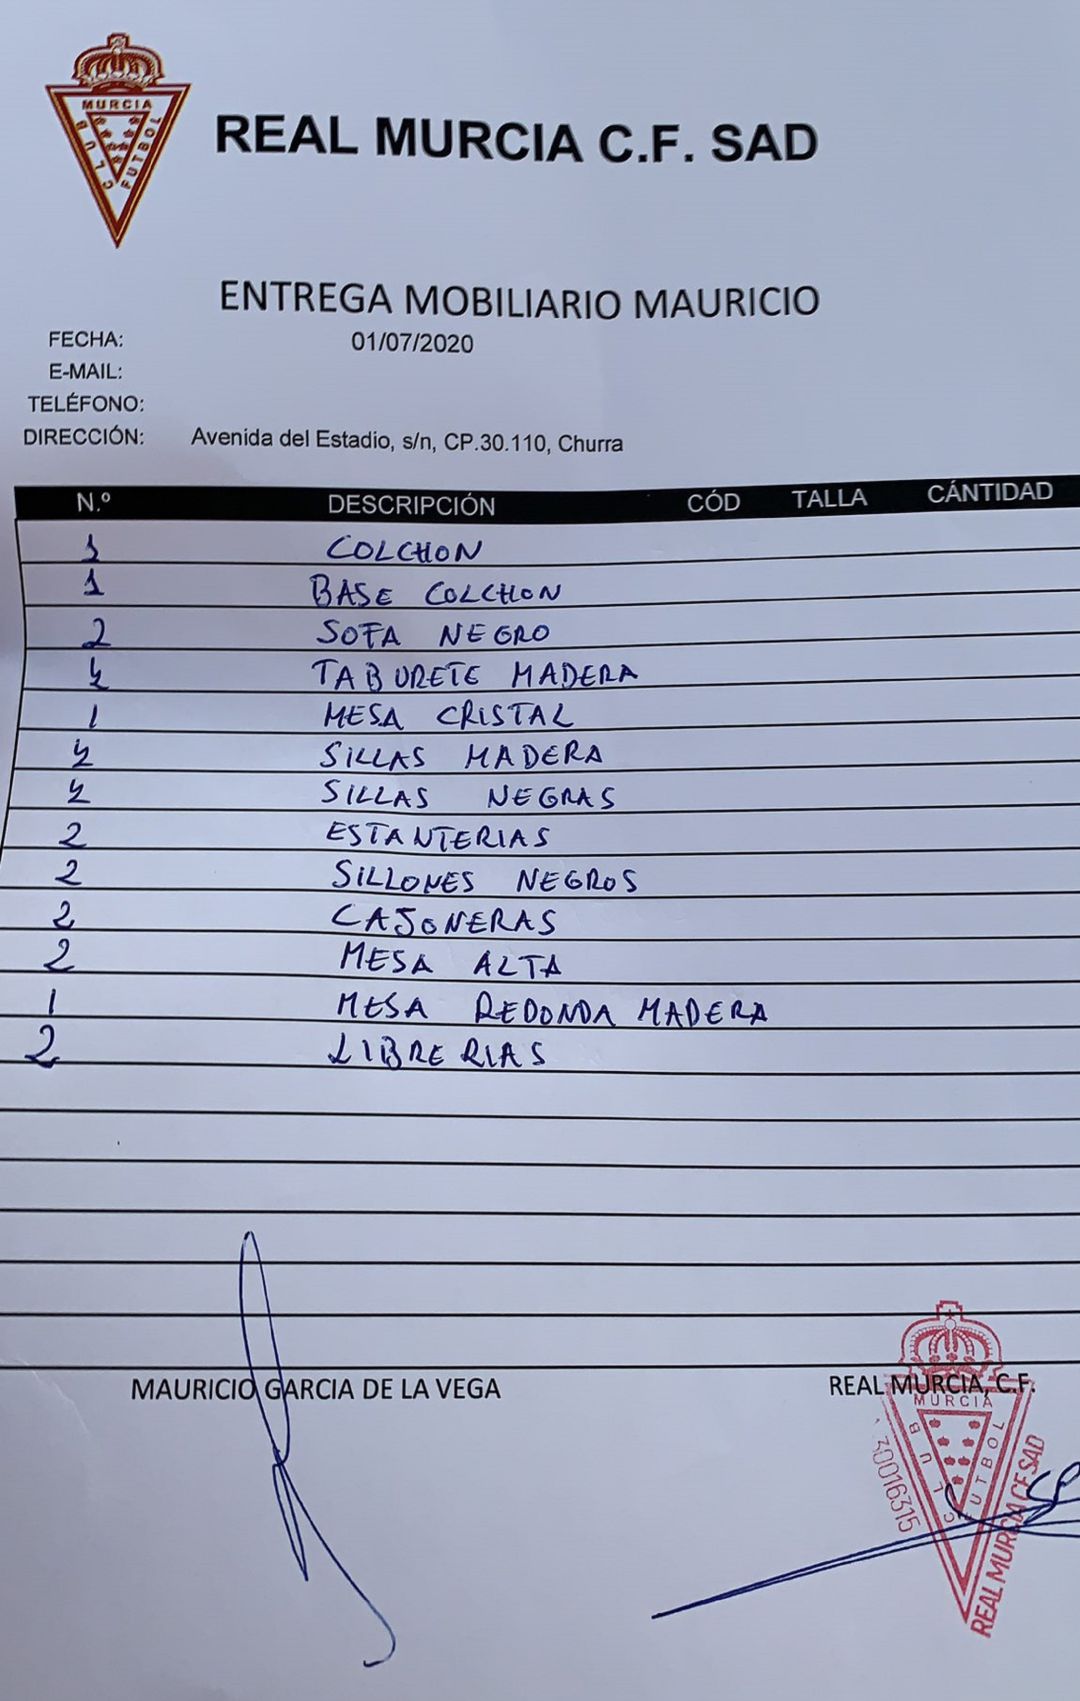 MURCIA
CLUB
FUTBOL
REAL MURCIA C.F. SAD
ENTREGA MOBILIARIO MAURICIO
FECHA: 01/07/2020
E-MAIL:
TELÉFONO:
DIRECCIÓN: Avenida del Estadio, s/n, CP.30.110, Churra
N.º DESCRIPCIÓN CÓD TALLA CÁNTIDAD
1 COLCHON
1 BASE COLCHON
2 SOFA NEGRO
TABURETE MADERA
1 MESA CRISTAL
SILLAS MADERA
SILLAS NEGRAS
2 ESTANTERIAS
2 SILLONES NEGROS
2 CAJONERAS
2 MESA ALTA
1 MESA REDONDA MADERA
2 LIBRERIAS
MAURICIO GARCIA DE LA VEGA REAL MURCIA, C.F.
MURCIA
CLUB
FUTBOL
30016315
REAL MURCIA CF SAD